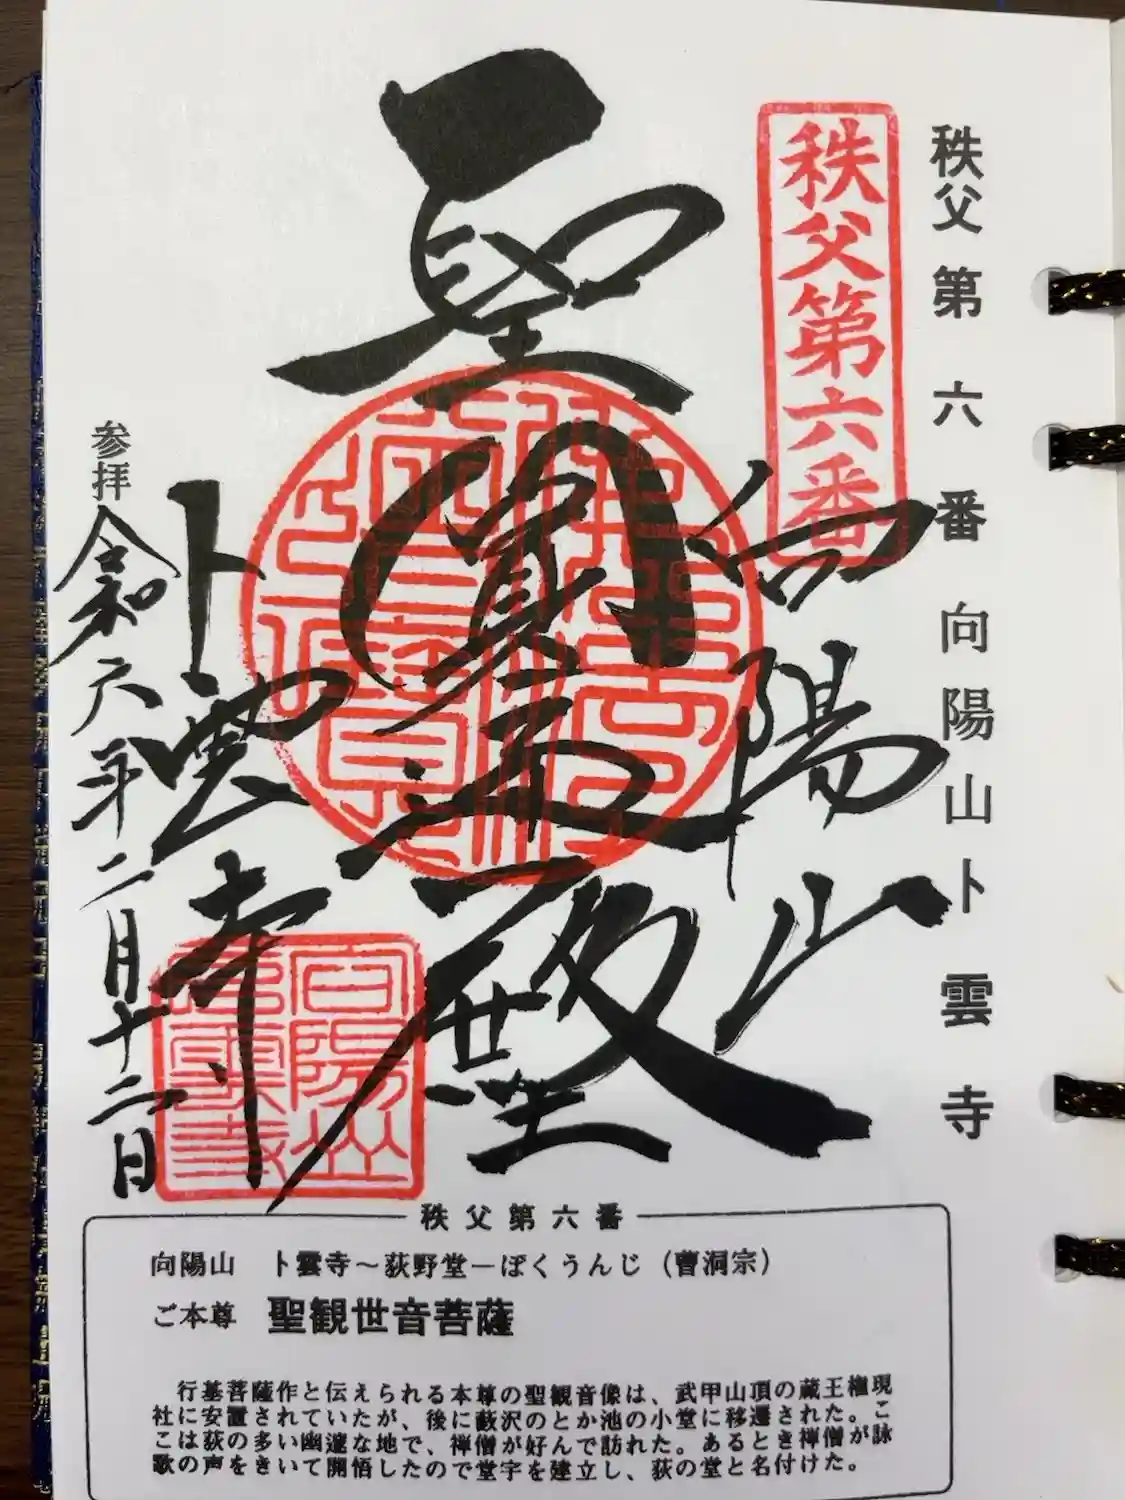 秩父第六番向陽山卜雲寺
秩父第六番
向陽山
聖
寳殿
卜雲寺
参拝 令和六年二月十二日
向陽山
卜雲寺
秩父第六番
向陽山 卜雲寺～荻野堂―ぼくうんじ（曹洞宗）
ご本尊 聖観世音菩薩
行基菩薩作と伝えられる本尊の聖観音像は、武甲山頂の蔵王権現
社に安置されていたが、後に藪沢のとか池の小堂に移遷された。こ
こは荻の多い幽邃な地で、禅僧が好んで訪れた。あるとき禅僧が詠
歌の声をきいて開悟したので堂宇を建立し、荻の堂と名付けた。